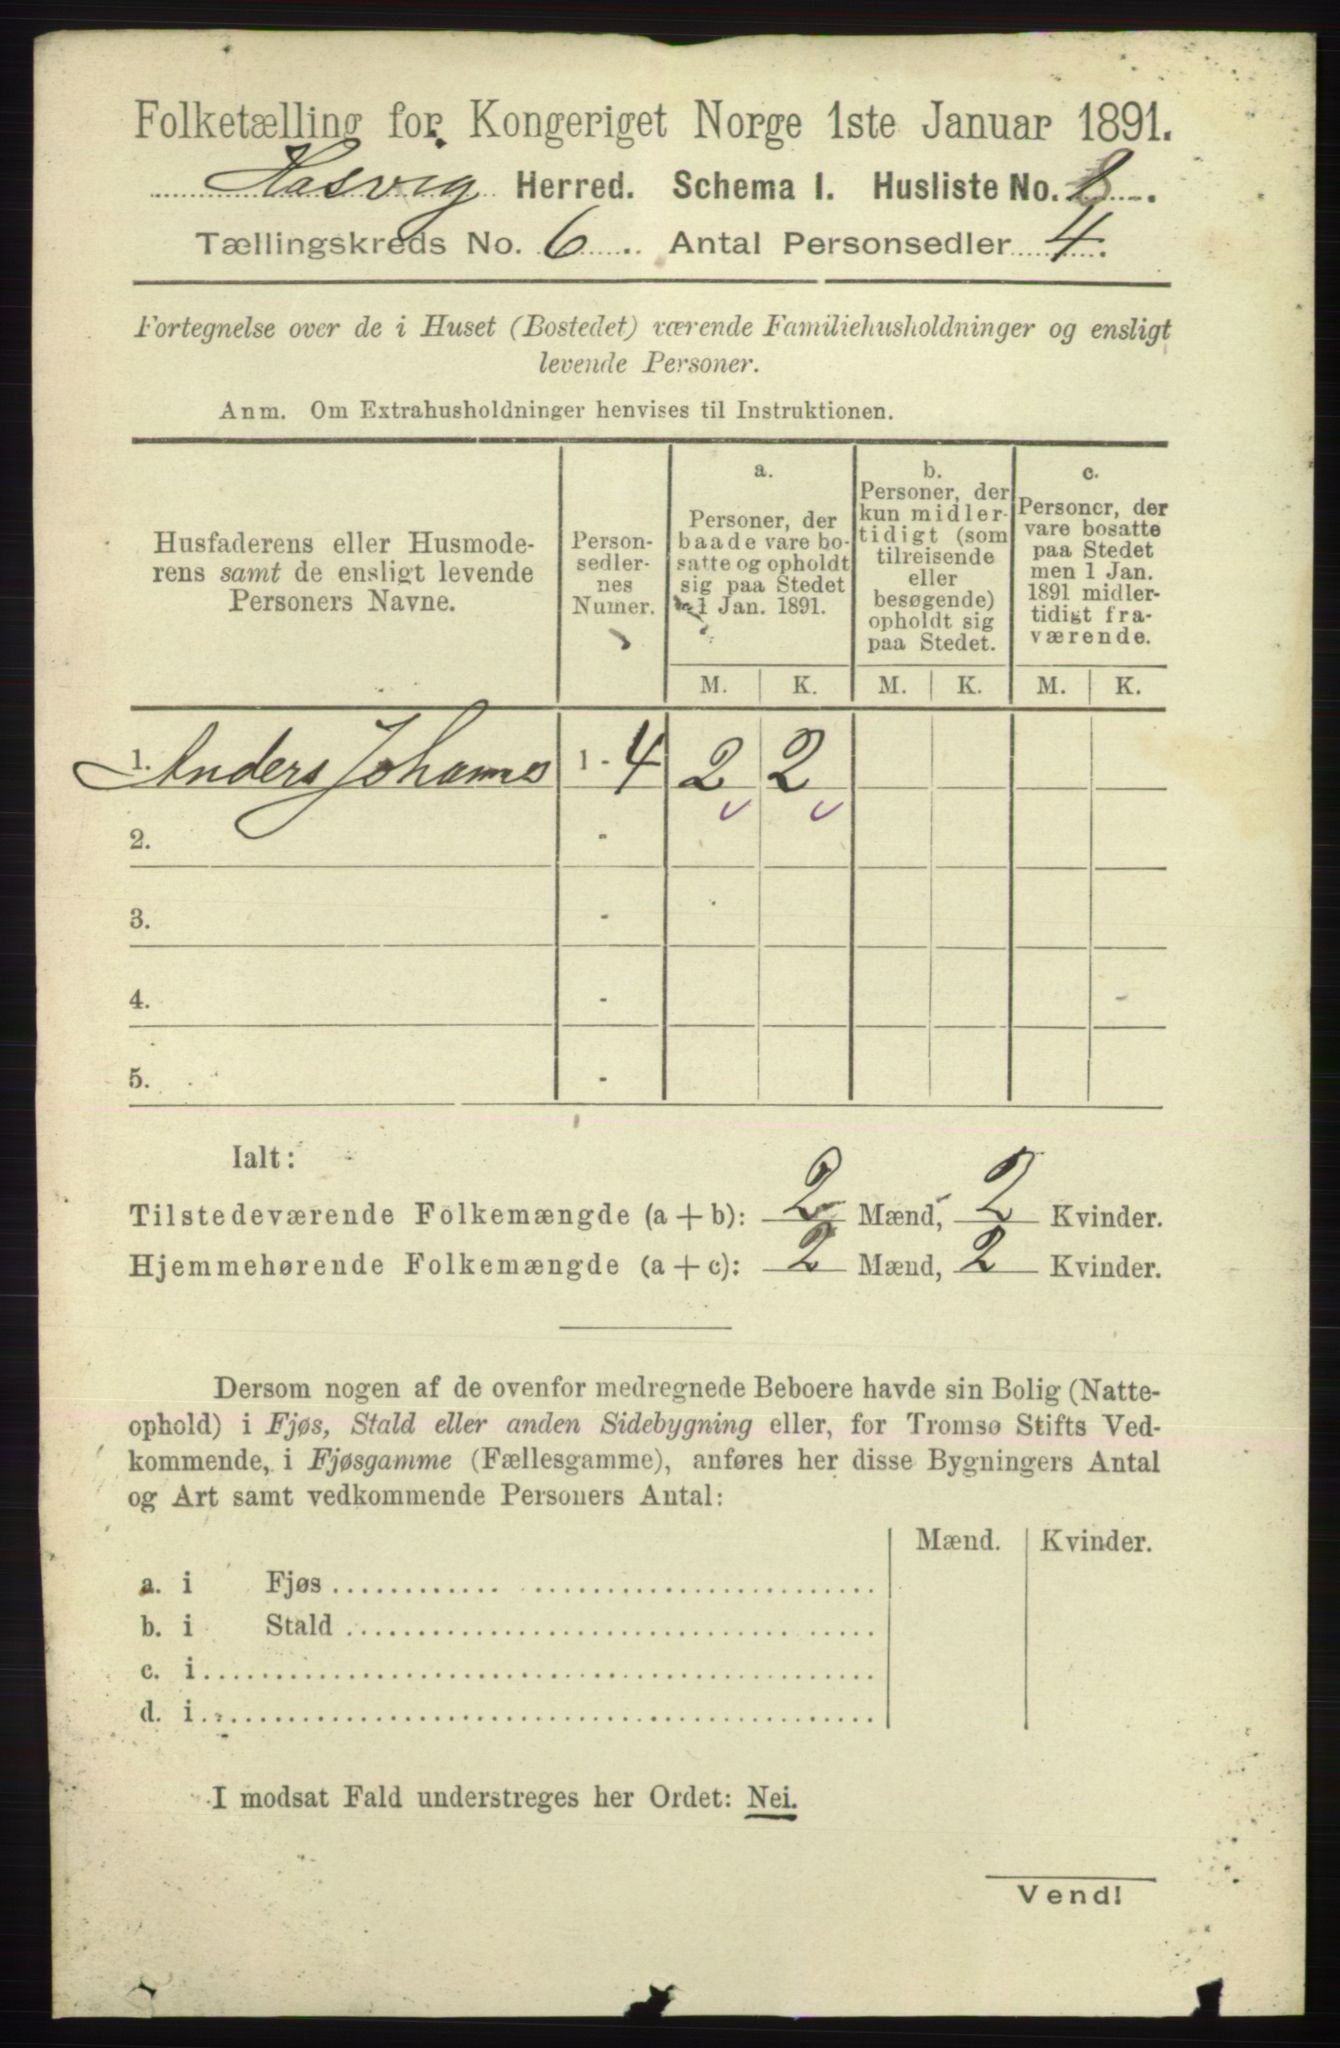 Folketælling for Kongeriget Norge 1ste Januar 1891.
Hasvig Herred. Schema 1. Husliste No. 2.
Tællingskreds No. 6. Antal Personsedler 4.
Fortegnelse over de i Huset (Bostedet) værende Familiehusholdninger og ensligt
levende Personer.
Anm. Om Extrahusholdninger henvises til Instruktionen.
Husfaderens eller Husmode-
rens samt de ensligt levende
Personers Navne.
Person-
sedler-
nes
Numer.
a.
Personer, der
baade vare bo-
satte og opholdt
sig paa Stedet
1 Jan. 1891.
b.
Personer, der
kun midler-
tidigt (som
tilreisende
eller
besøgende)
opholdt sig
paa Stedet.
c.
Personer, der
vare bosatte
paa Stedet
men 1 Jan.
1891 midler-
tidigt fra-
værende.
M. K. M. K. M. K.
1. Anders Johannes 1 - 4 2 2
2. -
3. -
4. -
5. -
Ialt:
Tilstedeværende Folkemængde (a + b): 2 Mænd, 2 Kvinder.
Hjemmehørende Folkemængde (a + c): 2 Mænd, 2 Kvinder.
Dersom nogen af de ovenfor medregnede Beboere havde sin Bolig (Natte-
ophold) i Fjøs, Stald eller anden Sidebygning eller, for Tromsø Stifts Ved-
kommende, i Fjøsgamme (Fællesgamme), anføres her disse Bygningers Antal
og Art samt vedkommende Personers Antal:
Mænd. Kvinder.
a. i Fjøs
b. i Stald
c. i
d. i
I modsat Fald understreges her Ordet: Nei.
Vend!